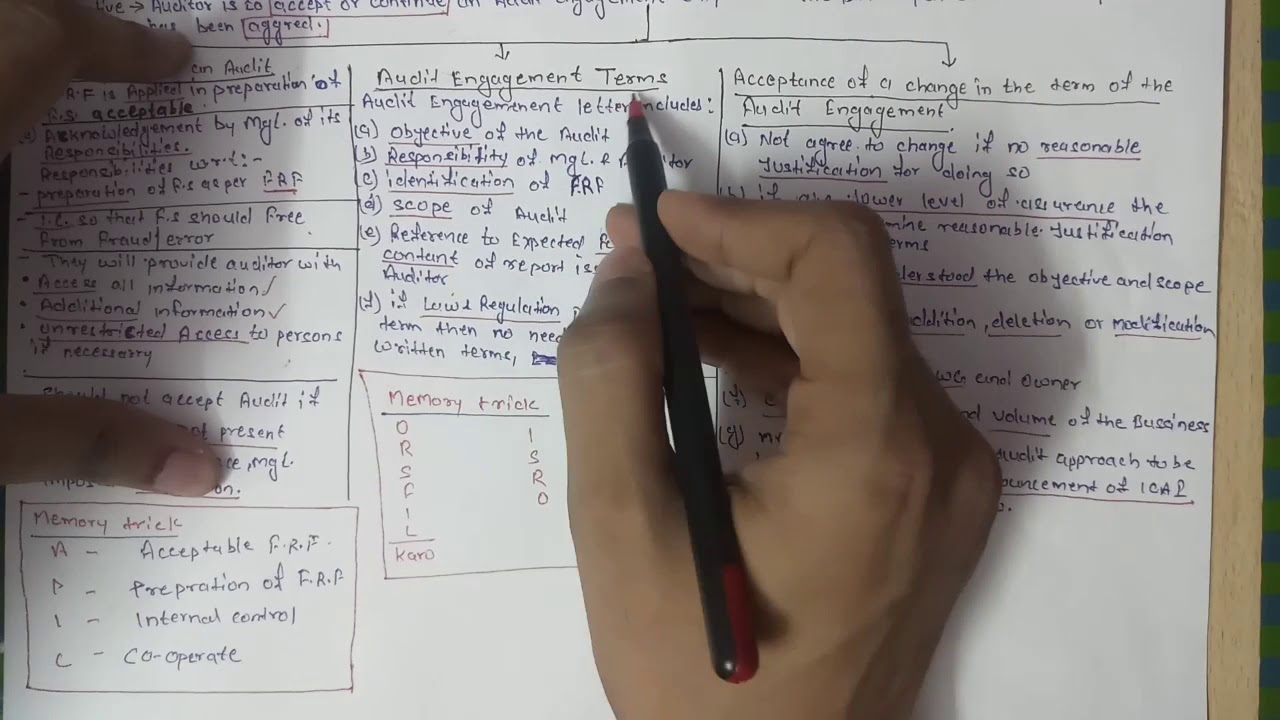 tive → Auditor is to accept or continue an Audit engagement only
has been aggred.
an Audit
R.F is Applied in preparation of
F.S. acceptable.
Acknowledgement by Mgt. of its
Responsibilities.
Responsibilities w.r.t:-
- preparation of F.S as per F.R.F
- I.C. so that F.S should free
from fraud/error
- They will provide auditor with
• Access all information ✓
• Additional information ✓
• unrestricted Access to persons
if necessary
should not accept Audit if
not present
ce, mgt.
impos on.
Memory trick
A - Acceptable F.R.F.
P - Prepration of F.R.F
I - Internal control
C - Co-operate
Audit Engagement Terms
Audit Engagement letter includes:
(a) objective of the Audit
(b) Responsibility of mgt. &
(c) identification of FRF
(d) scope of Audit
(e) Reference to Expected
contant of report is
Auditor
(f) if Law & Regulation
term then no nee
written terms,
Memory trick
O I
R S
S R
F O
I
L
Karo
Acceptance of a change in the term of the
Audit Engagement.
(a) Not agree to change if no reasonable
Justification for doing so
lower level of assurance the
mine reasonable Justification
rms
derstood the objective and scope
ddition, deletion or modification
and owner
(f)
(g) nd volume of the Bussiness
Audit approach to be
ouncement of ICAI